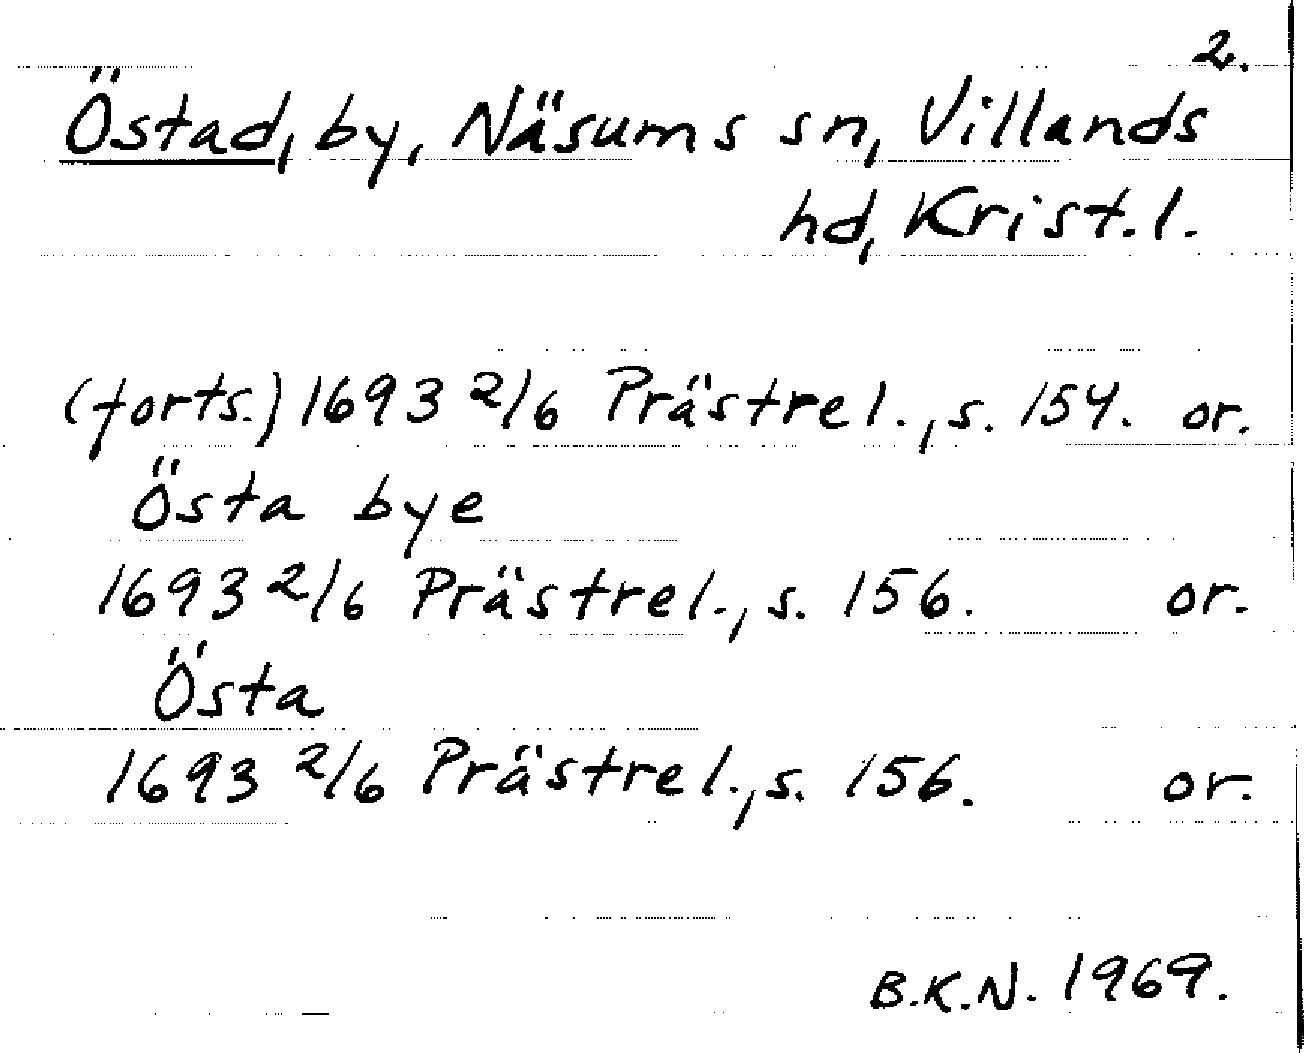 2.
Östad, by, Näsums sn, Villands
hd, Krist. l.
(forts.) 1693 2/6 Prästrel., s. 154. or.
Östa bye
1693 2/6 Prästrel., s. 156. or.
Östa
1693 2/6 Prästrel., s. 156. or.
B.K.N. 1969.